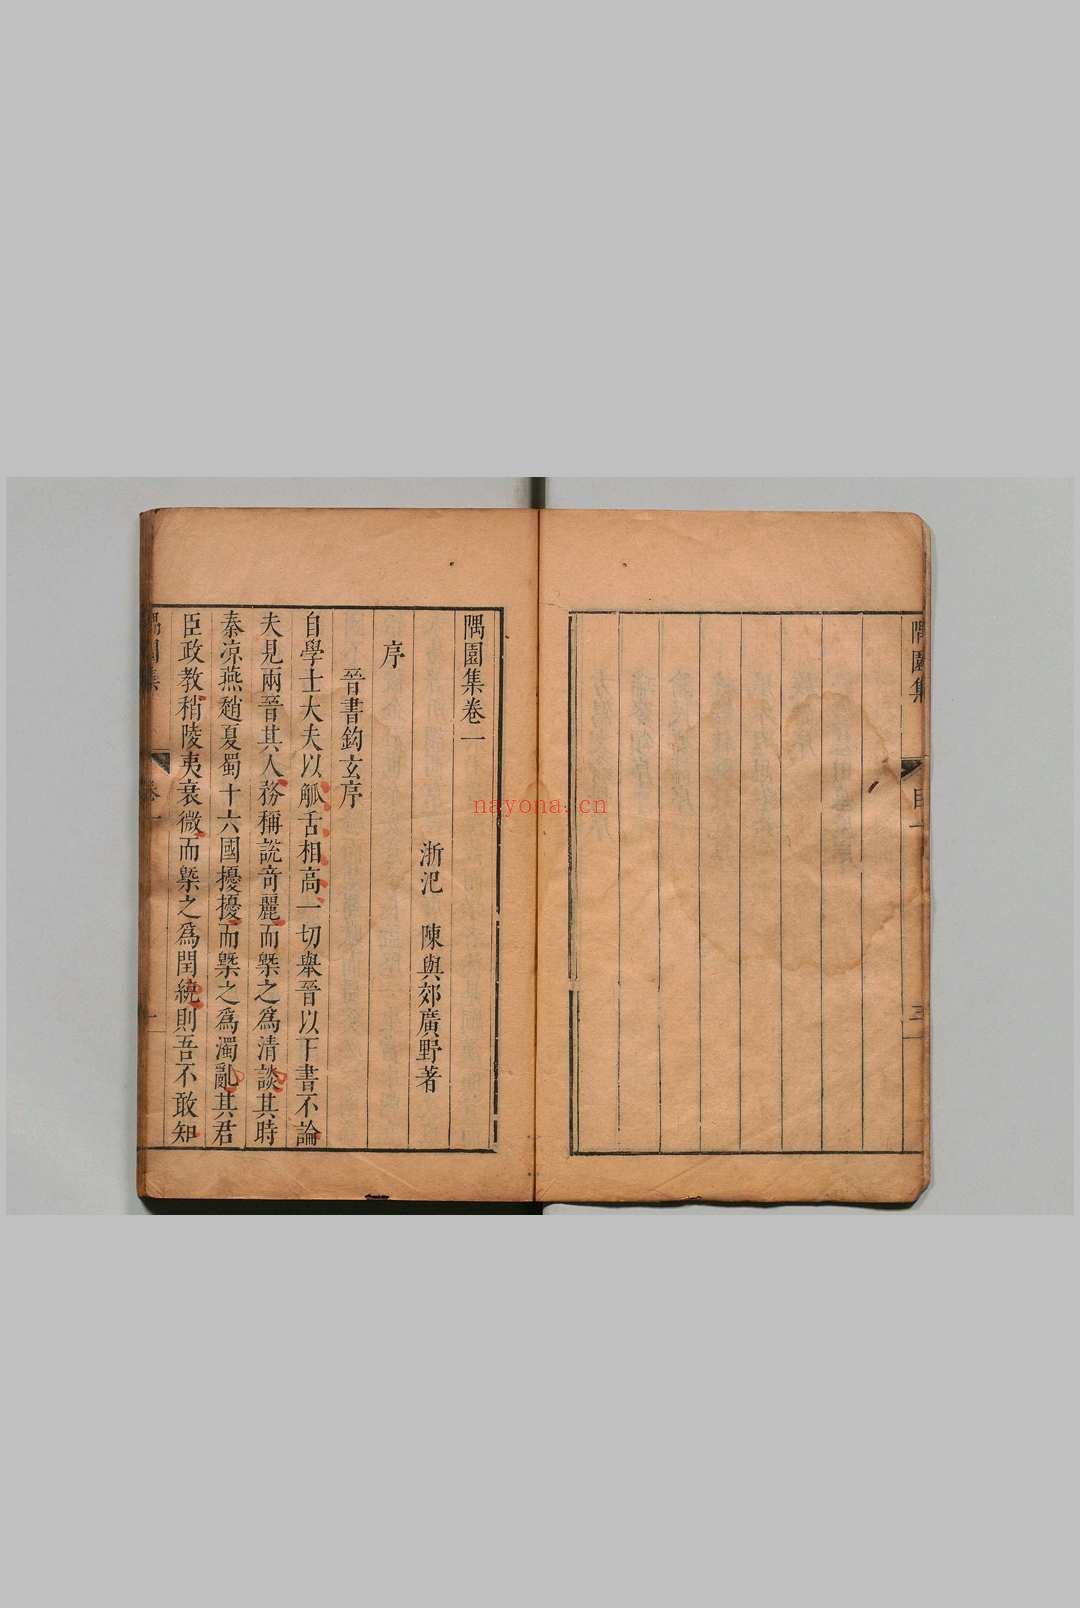 隅園集
目一
三
隅園集卷一
浙汜　陳與郊廣野著
序
晉書鈎玄序
自學士大夫以觚舌相高一切舉晉以下書不論
夫見兩晉其人務稱說奇麗而槩之爲清談其時
秦涼燕趙夏蜀十六國擾擾而槩之爲濁亂其君
臣政教稍陵夷衰微而槩之爲閏統則吾不敢知
隅園集
卷一
一
nayona.cn